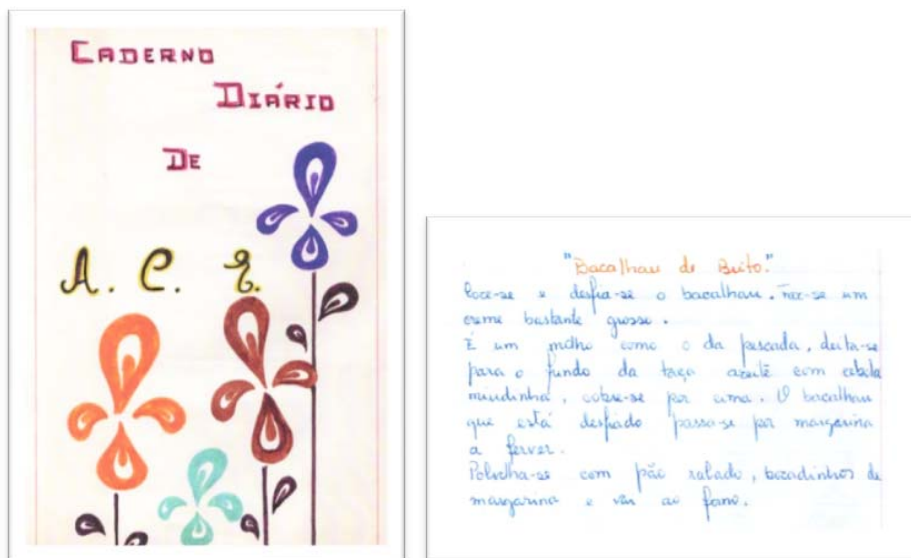 CADERNO
DIÁRIO
DE
A. C.
"Bacalhau de Brito."
Coze-se e desfia-se o bacalhau. Faz-se um
creme bastante grosso.
É um molho como o da pescada, deita-se
para o fundo da taça azeite com cebola
miudinha, cobre-se por cima. O bacalhau
que está desfiado passa-se por margarina
a ferver.
Polvilha-se com pão ralado, bocadinhos de
margarina e vai ao forno.